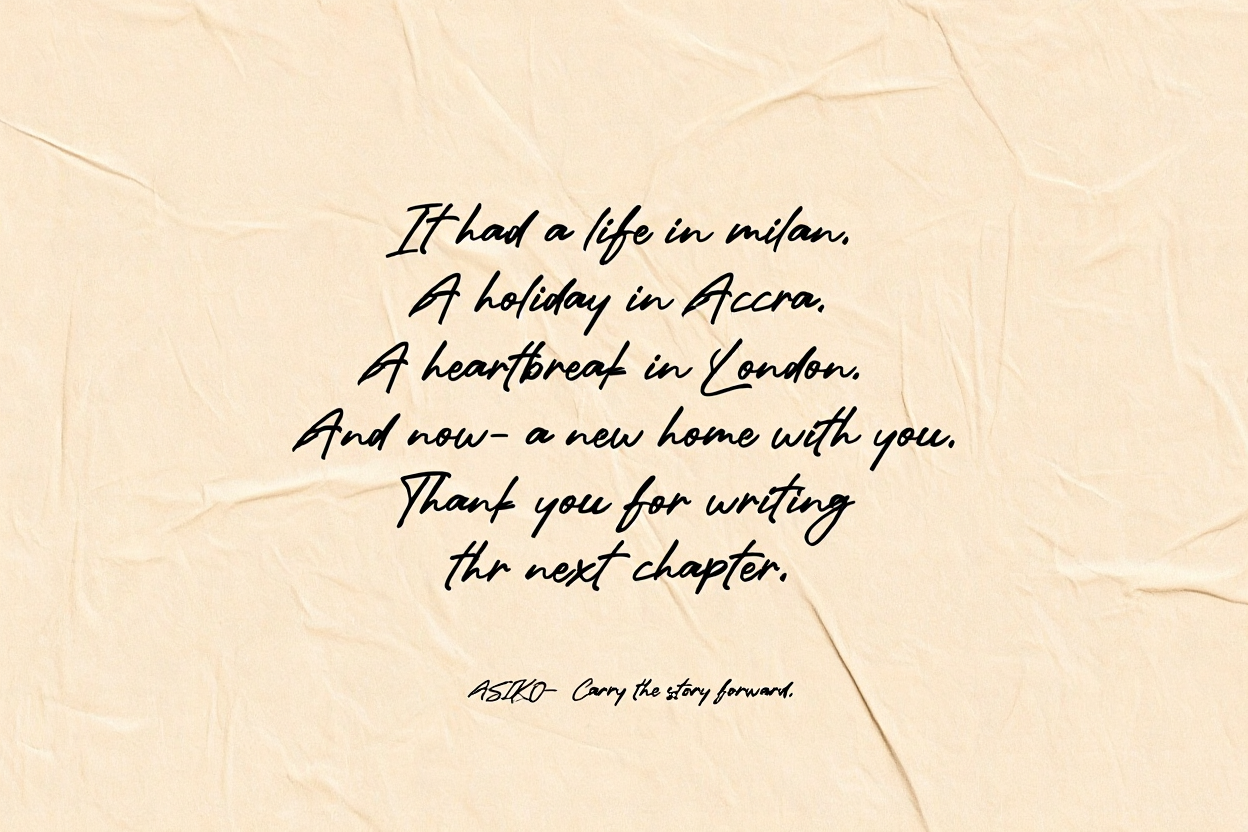 It had a life in milan.
A holiday in Accra.
A heartbreak in London.
And now- a new home with you.
Thank you for writing
thr next chapter.
ASIKO- Carry the story forward.